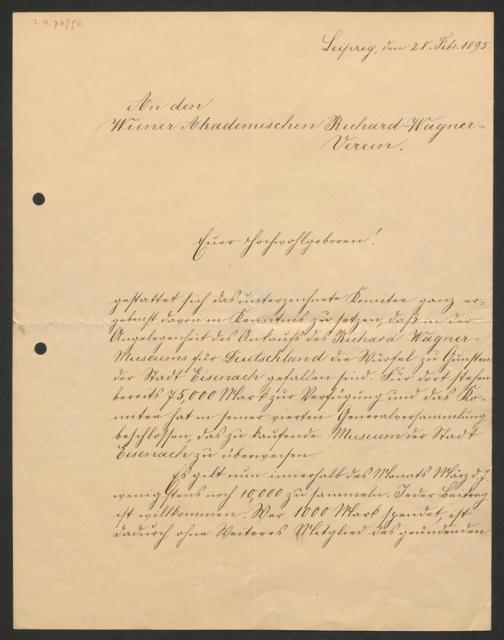 Leipzig, den 28. Febr. 1895
An den
Wiener Akademischen Richard-Wagner-
Verein.
Euer Hochwohlgeboren!
gestattet sich das unterzeichnete Komitee ganz er-
gebenst davon in Kenntnis zu setzen, daß in der
Angelegenheit des Ankaufs des Richard Wagner-
Museums für Deutschland die Würfel zu Gunsten
der Stadt Eisenach gefallen sind. Für dort stehen
bereits 75,000 Mark zur Verfügung und das Ko-
mitee hat in seiner vierten Generalversammlung
beschlossen, das zu kaufende Museum der Stadt
Eisenach zu überweisen.
Es gilt nun innerhalb des Monats März d. J.
wenigstens noch 10,000 zu sammeln. Jeder Beitrag
ist willkommen. Wer 1000 Mark spendet, ist
dadurch ohne Weiteres Mitglied des gründenden